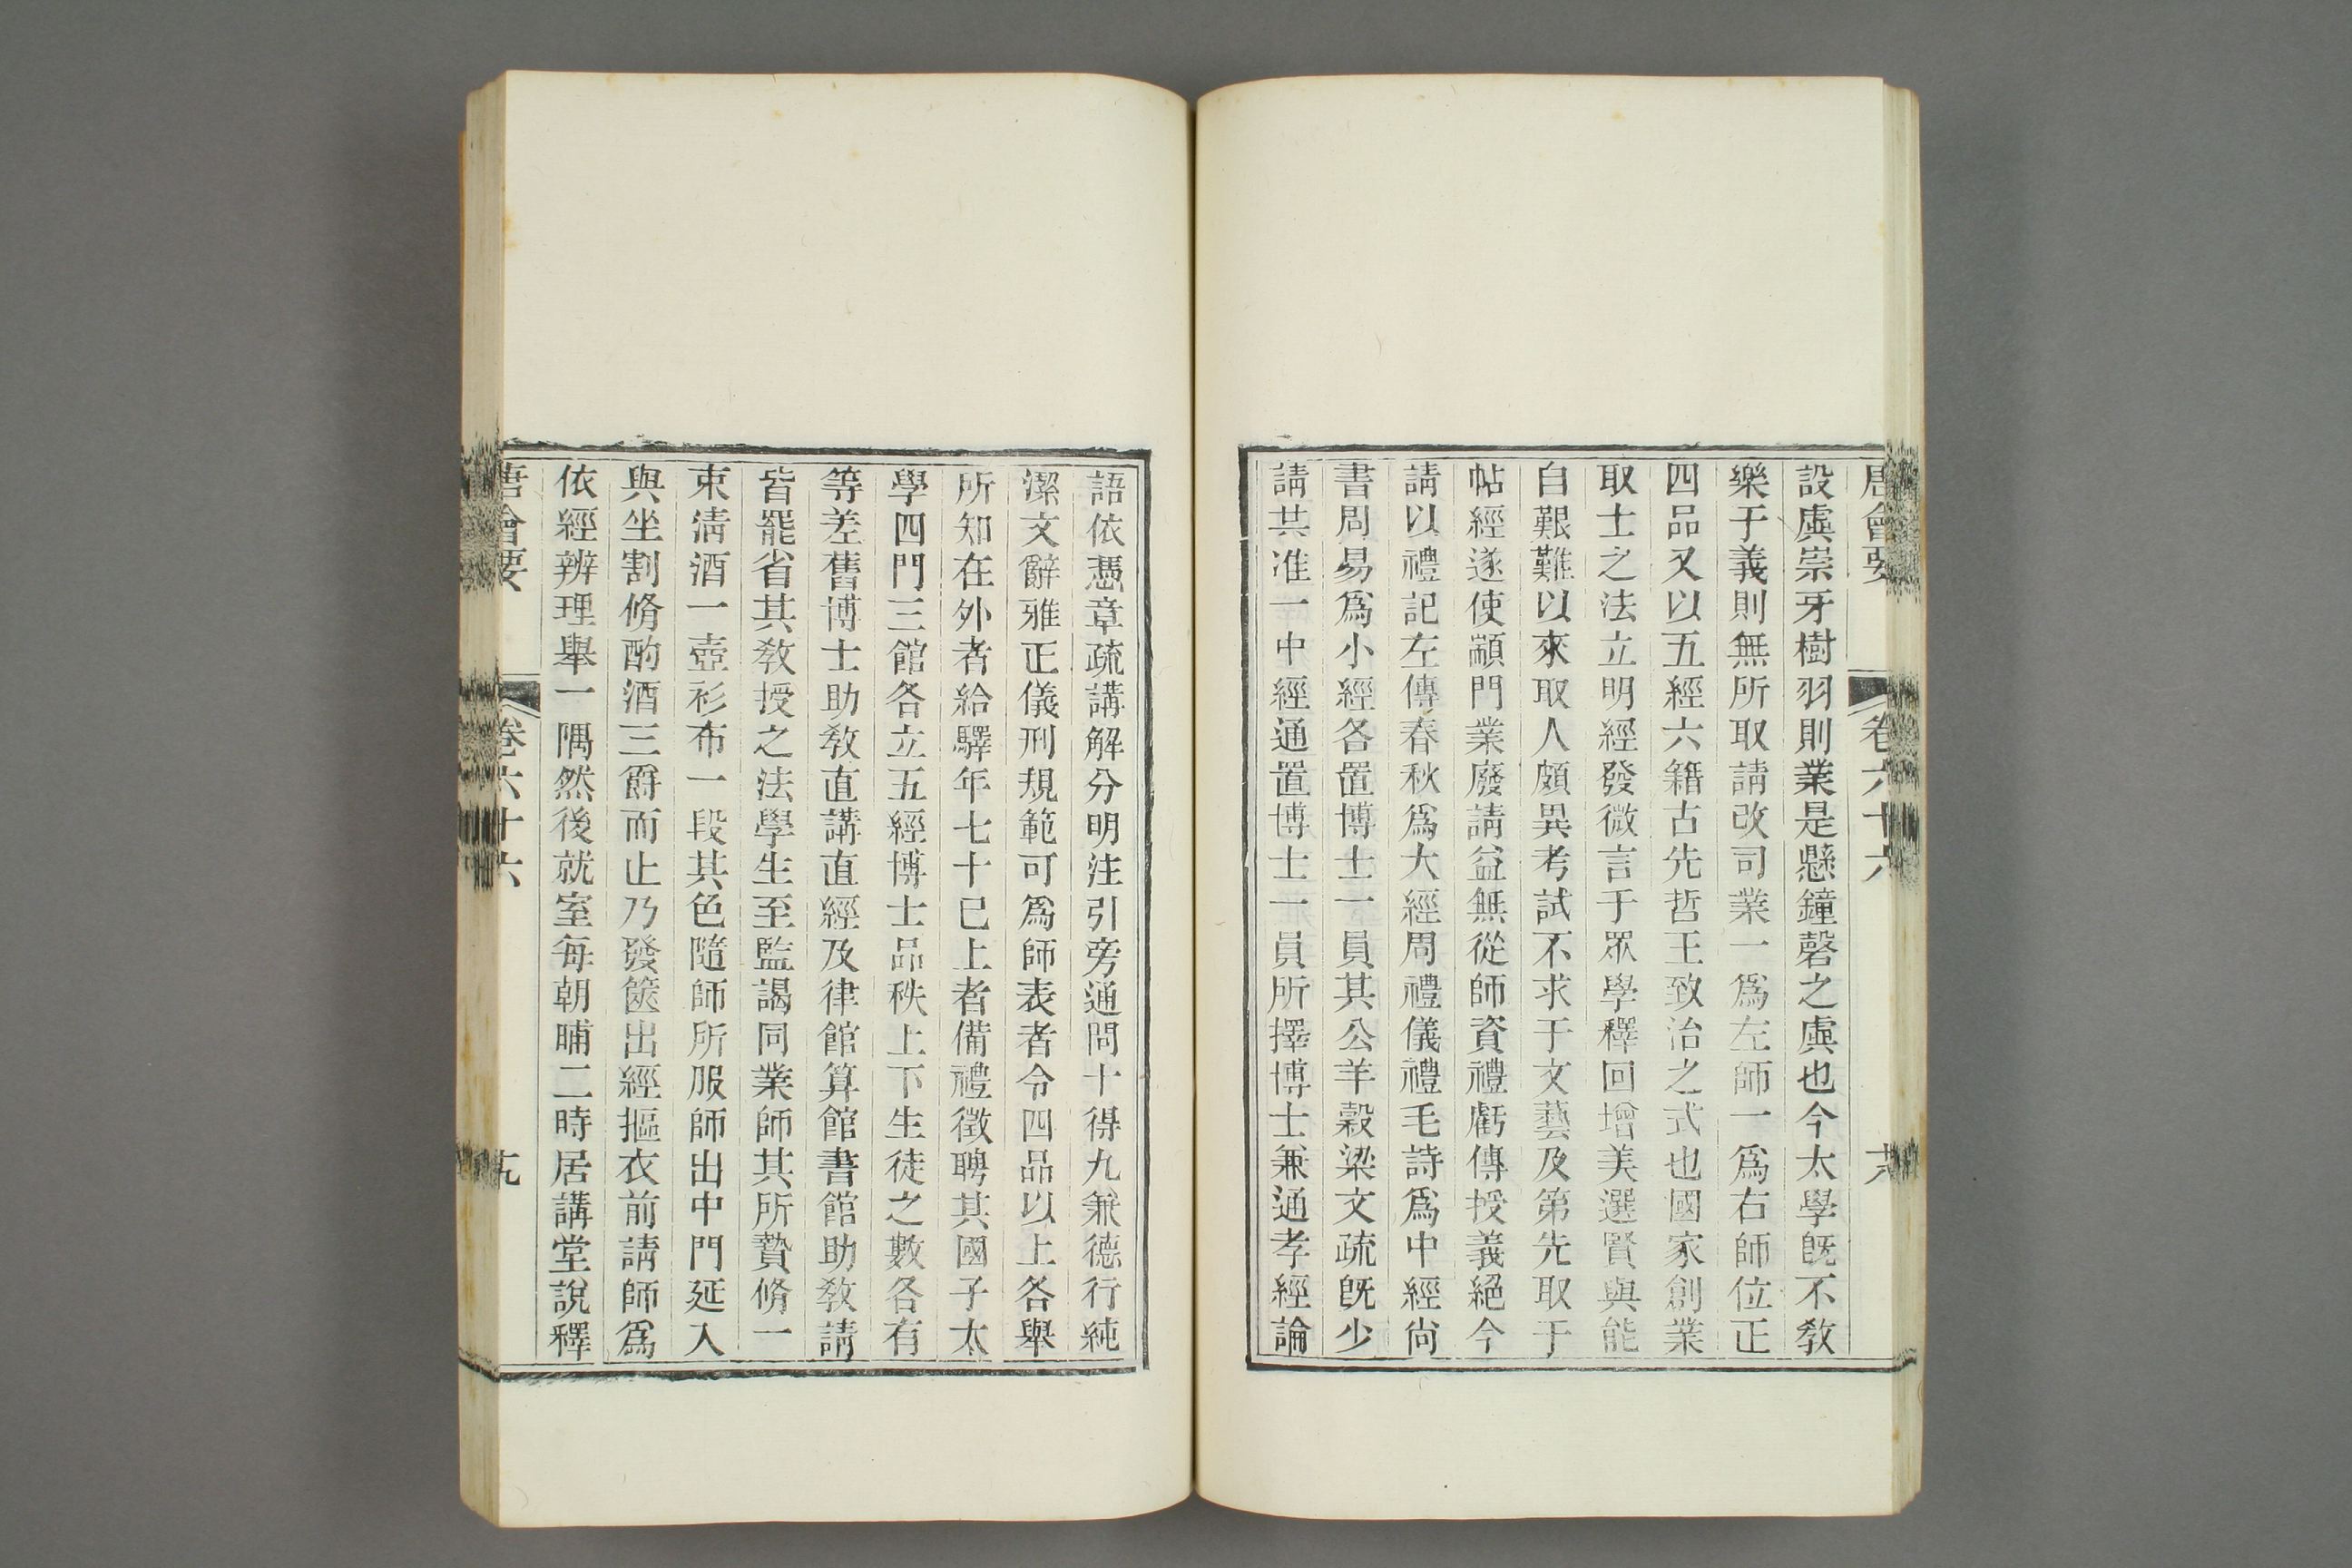 唐會要 卷六十六
設虡崇牙樹羽則業是懸鐘磬之虡也今太學旣不敎
樂于義則無所取請改司業一爲左師一爲右師位正
四品又以五經六籍古先哲王致治之式也國家創業
取士之法立明經發微言于眾學釋回增美選賢與能
自艱難以來取人頗異考試不求于文藝及第先取于
帖經遂使顓門業廢請益無從師資禮虧傳授義絕今
請以禮記左傳春秋爲大經周禮儀禮毛詩爲中經尙
書周易爲小經各置博士一員其公羊穀梁文疏旣少
請其准一中經通置博士一員所擇博士兼通孝經論
語依憑章疏講解分明注引旁通問十得九兼德行純
潔文辭雅正儀刑規範可爲師表者令四品以上各舉
所知在外者給驛年七十已上者備禮徵聘其國子太
學四門三館各立五經博士品秩上下生徒之數各有
等差舊博士助敎直講直經及律館算館書館助敎請
皆罷省其敎授之法學生至監謁同業師其所贄脩一
束淸酒一壺衫布一段其色隨師所服師出中門延入
與坐割脩酌酒三爵而止乃發篋出經摳衣前請師爲
依經辨理舉一隅然後就室每朝晡二時居講堂說釋
唐會要 卷六十六